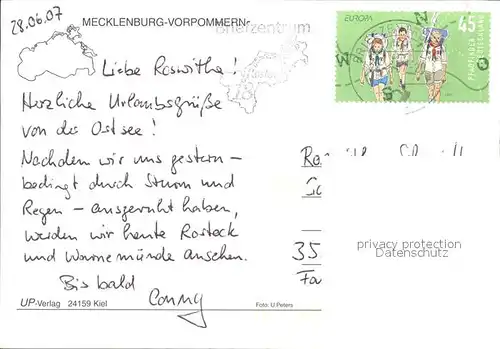 28.06.07
MECKLENBURG-VORPOMMERN
Briefzentrum
EUROPA
45
PFADFINDER
DEUTSCHLAND
N
W
O
S
Liebe Roswitha!
Herzliche Urlaubsgrüße
von der Ostsee!
Nachdem wir uns gestern –
bedingt durch Sturm und
Regen – ausgeruht haben,
werden wir heute Rostock
und Warnemünde ansehen.
Bis bald
Conny
35
privacy protection
Datenschutz
UP-Verlag 24159 Kiel
Foto: U.Peters